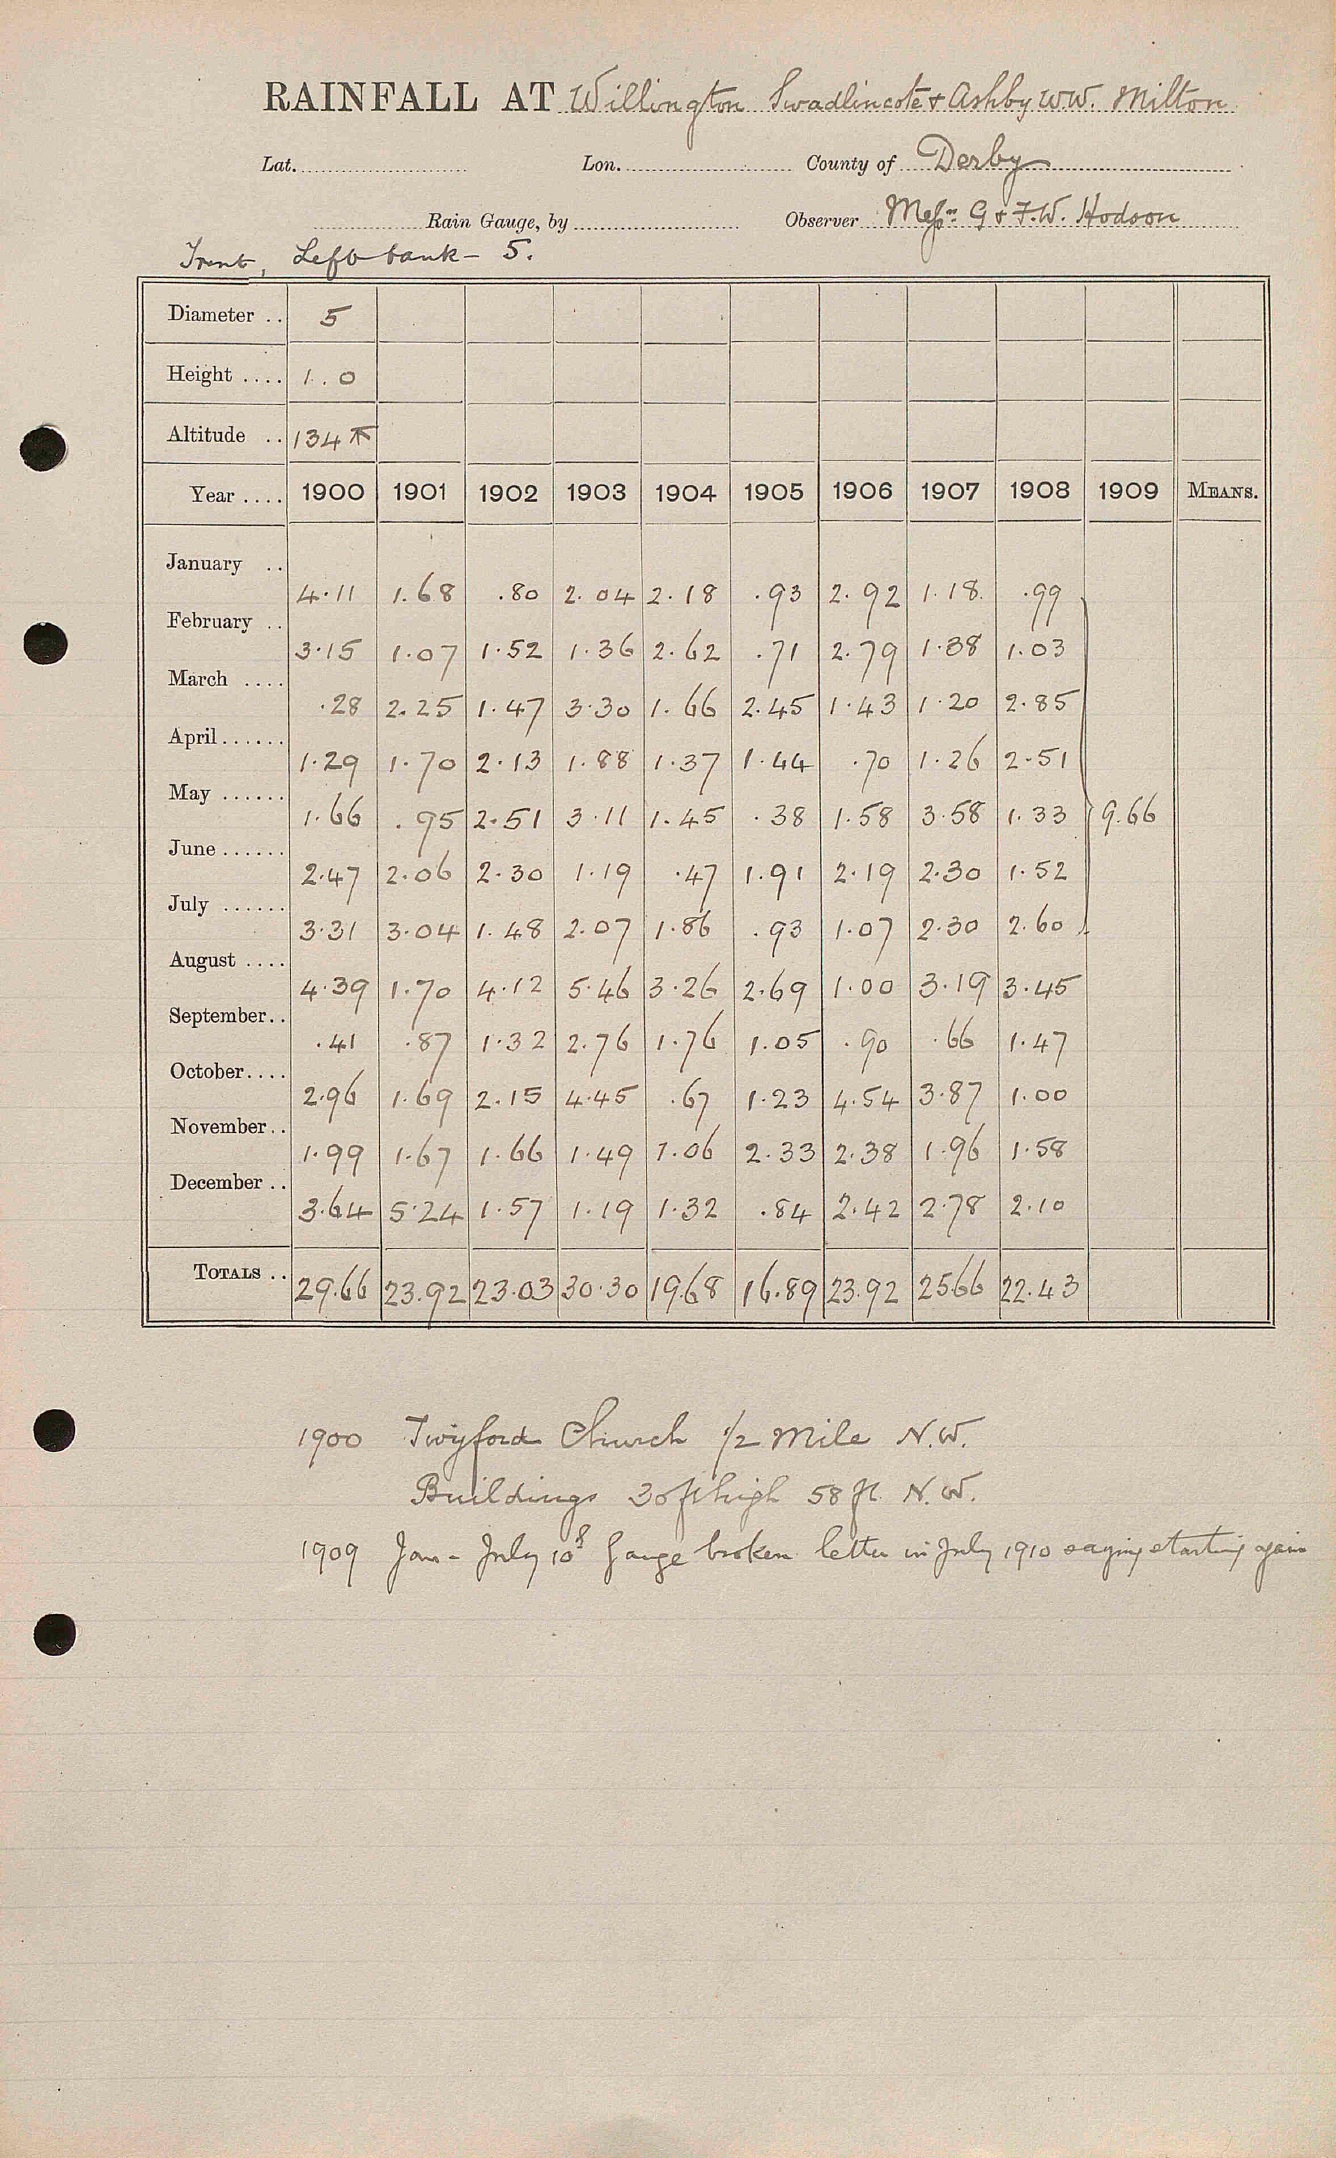 RAINFALL AT Willington Swadlincote & Ashby W.W. Milton
Lat. Lon. County of Derby
Rain Gauge, by Observer Messrs G & F.W. Hodson
Trent, Left bank - 5.
Diameter .. 5
Height .... 1.0
Altitude .. 134
Year .... 1900 1901 1902 1903 1904 1905 1906 1907 1908 1909 MEANS.
January .. 4.11 1.68 .80 2.04 2.18 .93 2.92 1.18 .99
February .. 3.15 1.07 1.52 1.36 2.62 .71 2.79 1.38 1.03
March .... .28 2.25 1.47 3.30 1.66 2.45 1.43 1.20 2.85
April...... 1.29 1.70 2.13 1.88 1.37 1.44 .70 1.26 2.51
May ...... 1.66 .95 2.51 3.11 1.45 .38 1.58 3.58 1.33 9.66
June...... 2.47 2.06 2.30 1.19 .47 1.91 2.19 2.30 1.52
July ...... 3.31 3.04 1.48 2.07 1.86 .93 1.07 2.30 2.60
August .... 4.39 1.70 4.12 5.46 3.26 2.69 1.00 3.19 3.45
September.. .41 .87 1.32 2.76 1.76 1.05 .90 .66 1.47
October.... 2.96 1.69 2.15 4.45 .67 1.23 4.54 3.87 1.00
November.. 1.99 1.67 1.66 1.49 1.06 2.33 2.38 1.96 1.58
December .. 3.64 5.24 1.57 1.19 1.32 .84 2.42 2.78 2.10
TOTALS .. 29.66 23.92 23.03 30.30 19.68 16.89 23.92 25.66 22.43
1900 Twyford Church 1/2 Mile N.W.
Buildings 30 ft high 58 ft N.W.
1909 Jan - July Gauge broken letter in July 1910 saying starting again